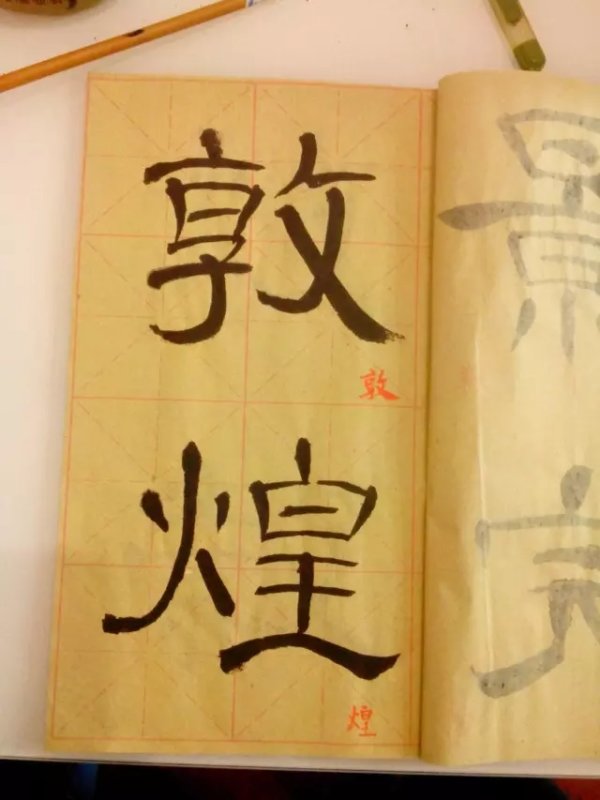 敦煌
敦
煌
景